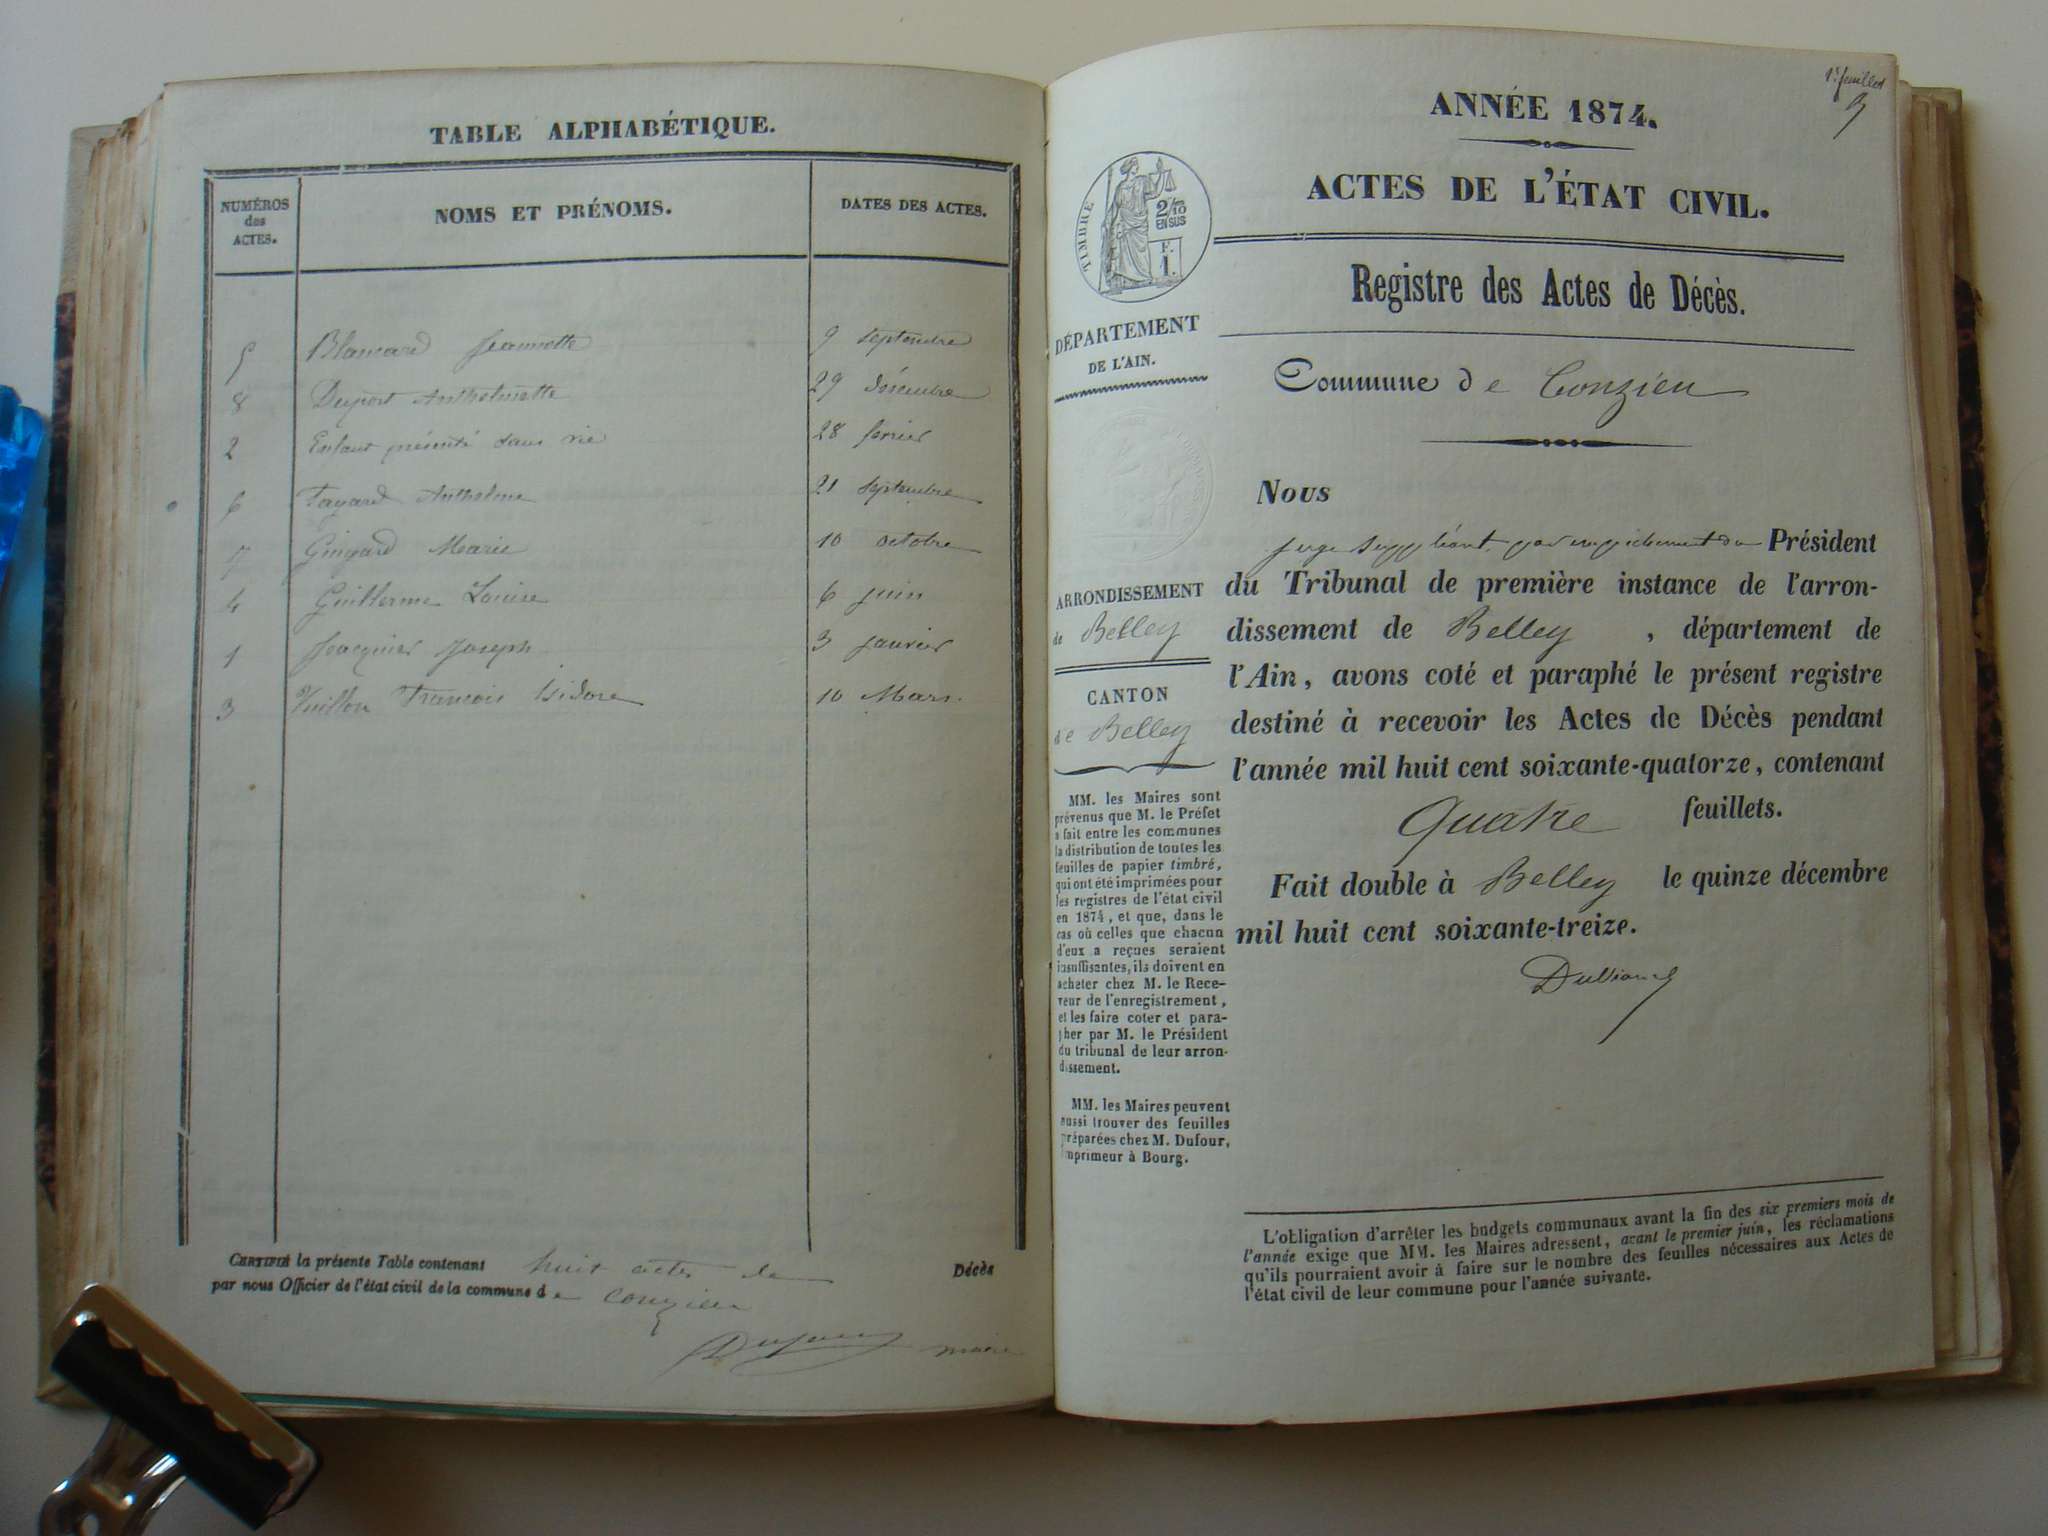 TABLE ALPHABÉTIQUE.
NUMÉROS des ACTES.
NOMS ET PRÉNOMS.
DATES DES ACTES.
5 Blancard Jeannette 9 septembre
8 Duport Anthelmette 29 décembre
2 Enfant présenté sans vie 28 février
6 Fayard Anthelme 21 septembre
7 Gingard Marie 10 octobre
4 Guillerme Louise 6 juin
1 Jacquier Joseph 3 janvier
3 Vuillon François Isidore 10 Mars.
CERTIFIÉ la présente Table contenant huit actes de Décès
par nous Officier de l'état civil de la commune de Conzieu
maire
1er feuillet
ANNÉE 1874.
ACTES DE L'ÉTAT CIVIL.
TIMBRE
2/10
EN SUS
F.
1.
Registre des Actes de Décès.
DÉPARTEMENT
DE L'AIN.
Commune de Conzieu
Nous
juge suppléant, par empêchement du Président
du Tribunal de première instance de l'arron-
dissement de Belley, département de
l'Ain, avons coté et paraphé le présent registre
destiné à recevoir les Actes de Décès pendant
l'année mil huit cent soixante-quatorze, contenant
Quatre feuillets.
Fait double à Belley le quinze décembre
mil huit cent soixante-treize.
ARRONDISSEMENT
de Belley
CANTON
de Belley
MM. les Maires sont
prévenus que M. le Préfet
a fait entre les communes
la distribution de toutes les
feuilles de papier timbré,
qui ont été imprimées pour
les registres de l'état civil
en 1874, et que, dans le
cas où celles que chacun
d'eux a reçues seraient
insuffisantes, ils doivent en
acheter chez M. le Rece-
veur de l'enregistrement,
et les faire coter et para-
pher par M. le Président
du tribunal de leur arron-
dissement.
MM. les Maires peuvent
aussi trouver des feuilles
préparées chez M. Dufour,
imprimeur à Bourg.
L'obligation d'arrêter les budgets communaux avant la fin des six premiers mois de
l'année exige que MM. les Maires adressent, avant le premier juin, les réclamations
qu'ils pourraient avoir à faire sur le nombre des feuilles nécessaires aux Actes de
l'état civil de leur commune pour l'année suivante.